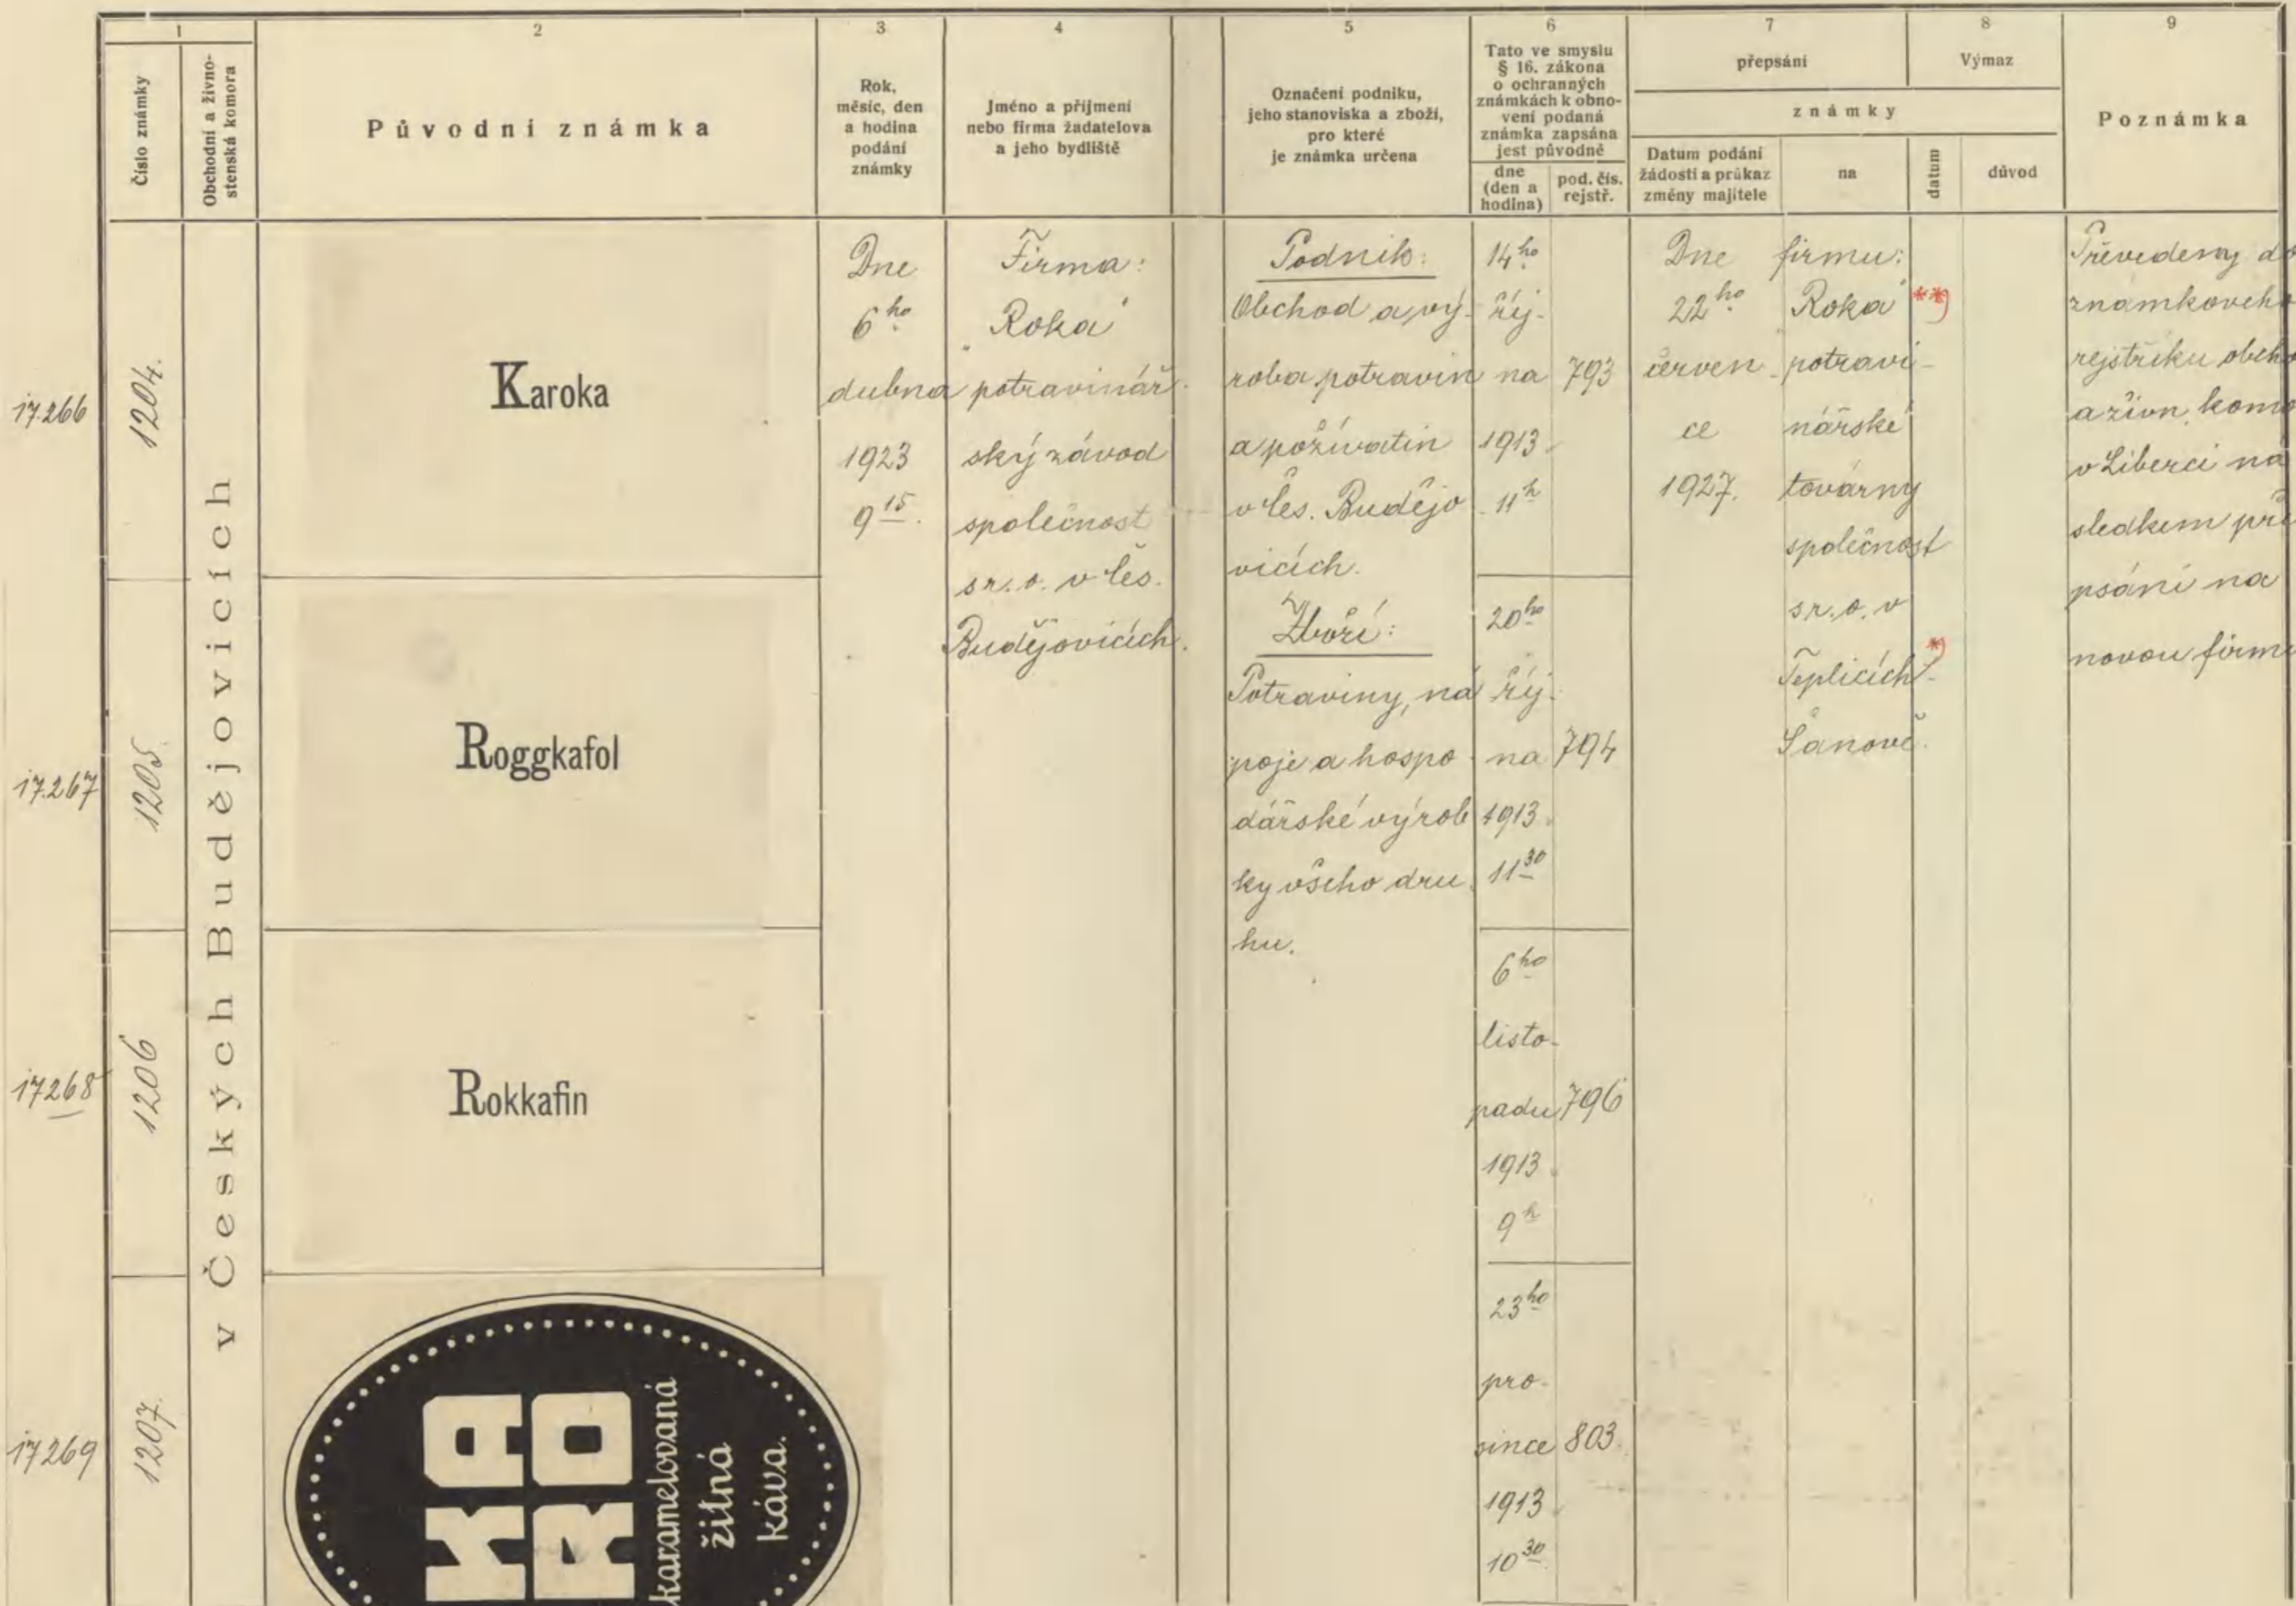 1
Číslo známky
Obchodní a živno-
stenská komora
2
Původní známka
3
Rok,
měsíc, den
a hodina
podání
známky
4
Jméno a příjmení
nebo firma žadatelova
a jeho bydliště
5
Označení podniku,
jeho stanoviska a zboží,
pro které
je známka určena
6
Tato ve smyslu
§ 16. zákona
o ochranných
známkách k obno-
vení podaná
známka zapsána
jest původně
dne
(den a
hodina)
pod. čís.
rejstř.
7
přepsání
8
Výmaz
známky
Datum podání
žádosti a průkaz
změny majitele
na
datum
důvod
9
Poznámka
17.266
1204.
17.267
1205.
17268
1206
17269
1207.
v Českých Budějovicích
Karoka
Roggkafol
Rokkafin
KA
RO
karamelovaná
žitná
káva.
Dne
6ho
dubna
1923
9 15.
Firma:
"Roka"
potravinář-
ský závod
společnost
s r. o. v Čes.
Budějovicích.
Podnik:
Obchod a vý-
roba potravin
a poživatin
v Čes. Budějo
vicích.
Zboží:
Potraviny, ná
poje a hospo-
dářské výrob
ky všeho dru
hu.
14ho
říj-
na 793
1913.
11h
20ho
říj-
na 794
1913.
11 30
6ho
listo-
padu 796
1913.
9h
23ho
pro-
since 803.
1913.
10 30
Dne
22ho
červen-
ce
1927.
firmu:
"Roka" **)
potravi-
nářské
továrny
společnost
s r. o. v
Teplicích- *)
Šanově.
Převedeny do
známkového
rejstříku obcho
a živn. komo
v Liberci ná
sledkem pře
psání na
novou firmu